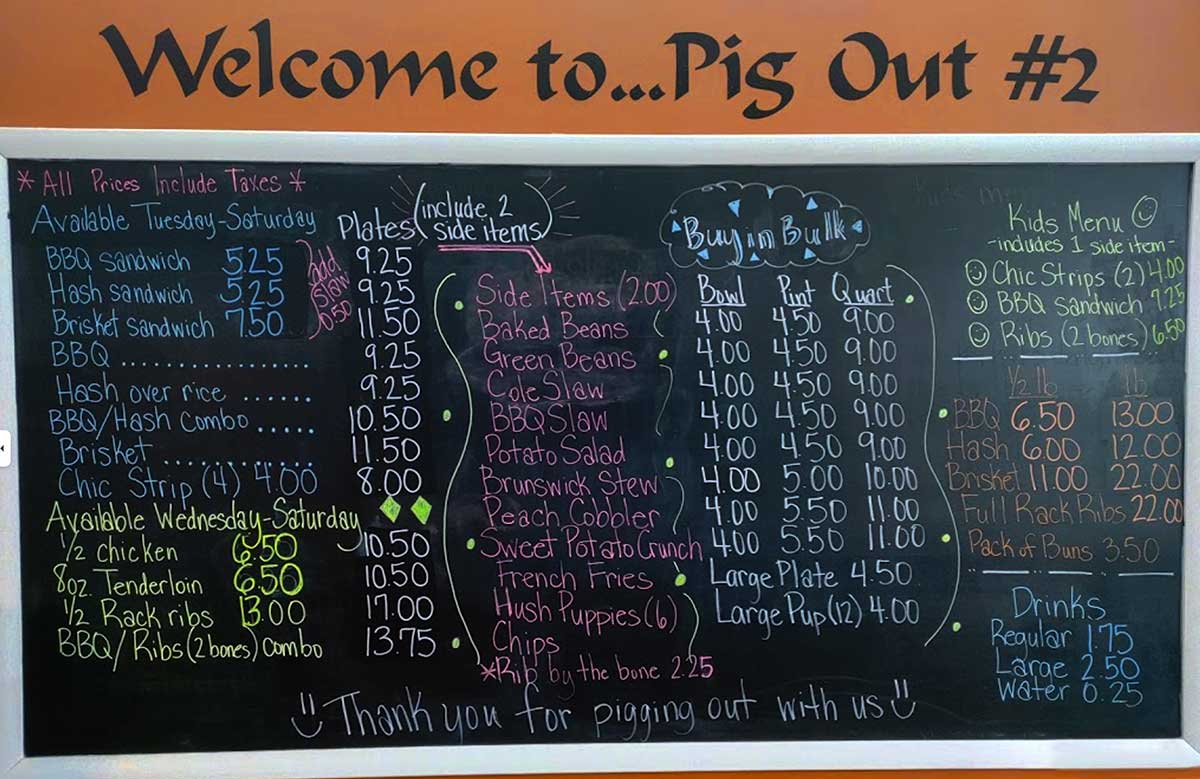 Welcome to...Pig Out #2
* All Prices Include Taxes *
Available Tuesday-Saturday
Plates (include 2 side items)
BBQ sandwich 5.25 9.25
Hash sandwich 5.25 9.25
Brisket sandwich 7.50 11.50
add slaw 0.50
BBQ .................. 9.25
Hash over rice ...... 9.25
BBQ/Hash Combo ..... 10.50
Brisket .............. 11.50
Chic Strip (4) 4.00 8.00
Available Wednesday-Saturday
1/2 chicken 6.50 10.50
8oz. Tenderloin 6.50 10.50
1/2 Rack ribs 13.00 17.00
BBQ/Ribs (2 bones) combo 13.75
Buy in Bulk
Side Items (2.00) Bowl Pint Quart
Baked Beans 4.00 4.50 9.00
Green Beans 4.00 4.50 9.00
Cole Slaw 4.00 4.50 9.00
BBQ Slaw 4.00 4.50 9.00
Potato Salad 4.00 4.50 9.00
Brunswick Stew 4.00 5.00 10.00
Peach Cobbler 4.00 5.50 11.00
Sweet Potato Crunch 4.00 5.50 11.00
French Fries Large Plate 4.50
Hush Puppies (6) Large Pup (12) 4.00
Chips
*Rib by the bone 2.25
Kids Menu
-includes 1 side item-
Chic Strips (2) 4.00
BBQ sandwich 7.25
Ribs (2 bones) 6.50
1/2 lb lb
BBQ 6.50 13.00
Hash 6.00 12.00
Brisket 11.00 22.00
Full Rack Ribs 22.00
Pack of Buns 3.50
Drinks
Regular 1.75
Large 2.50
Water 0.25
Thank you for pigging out with us